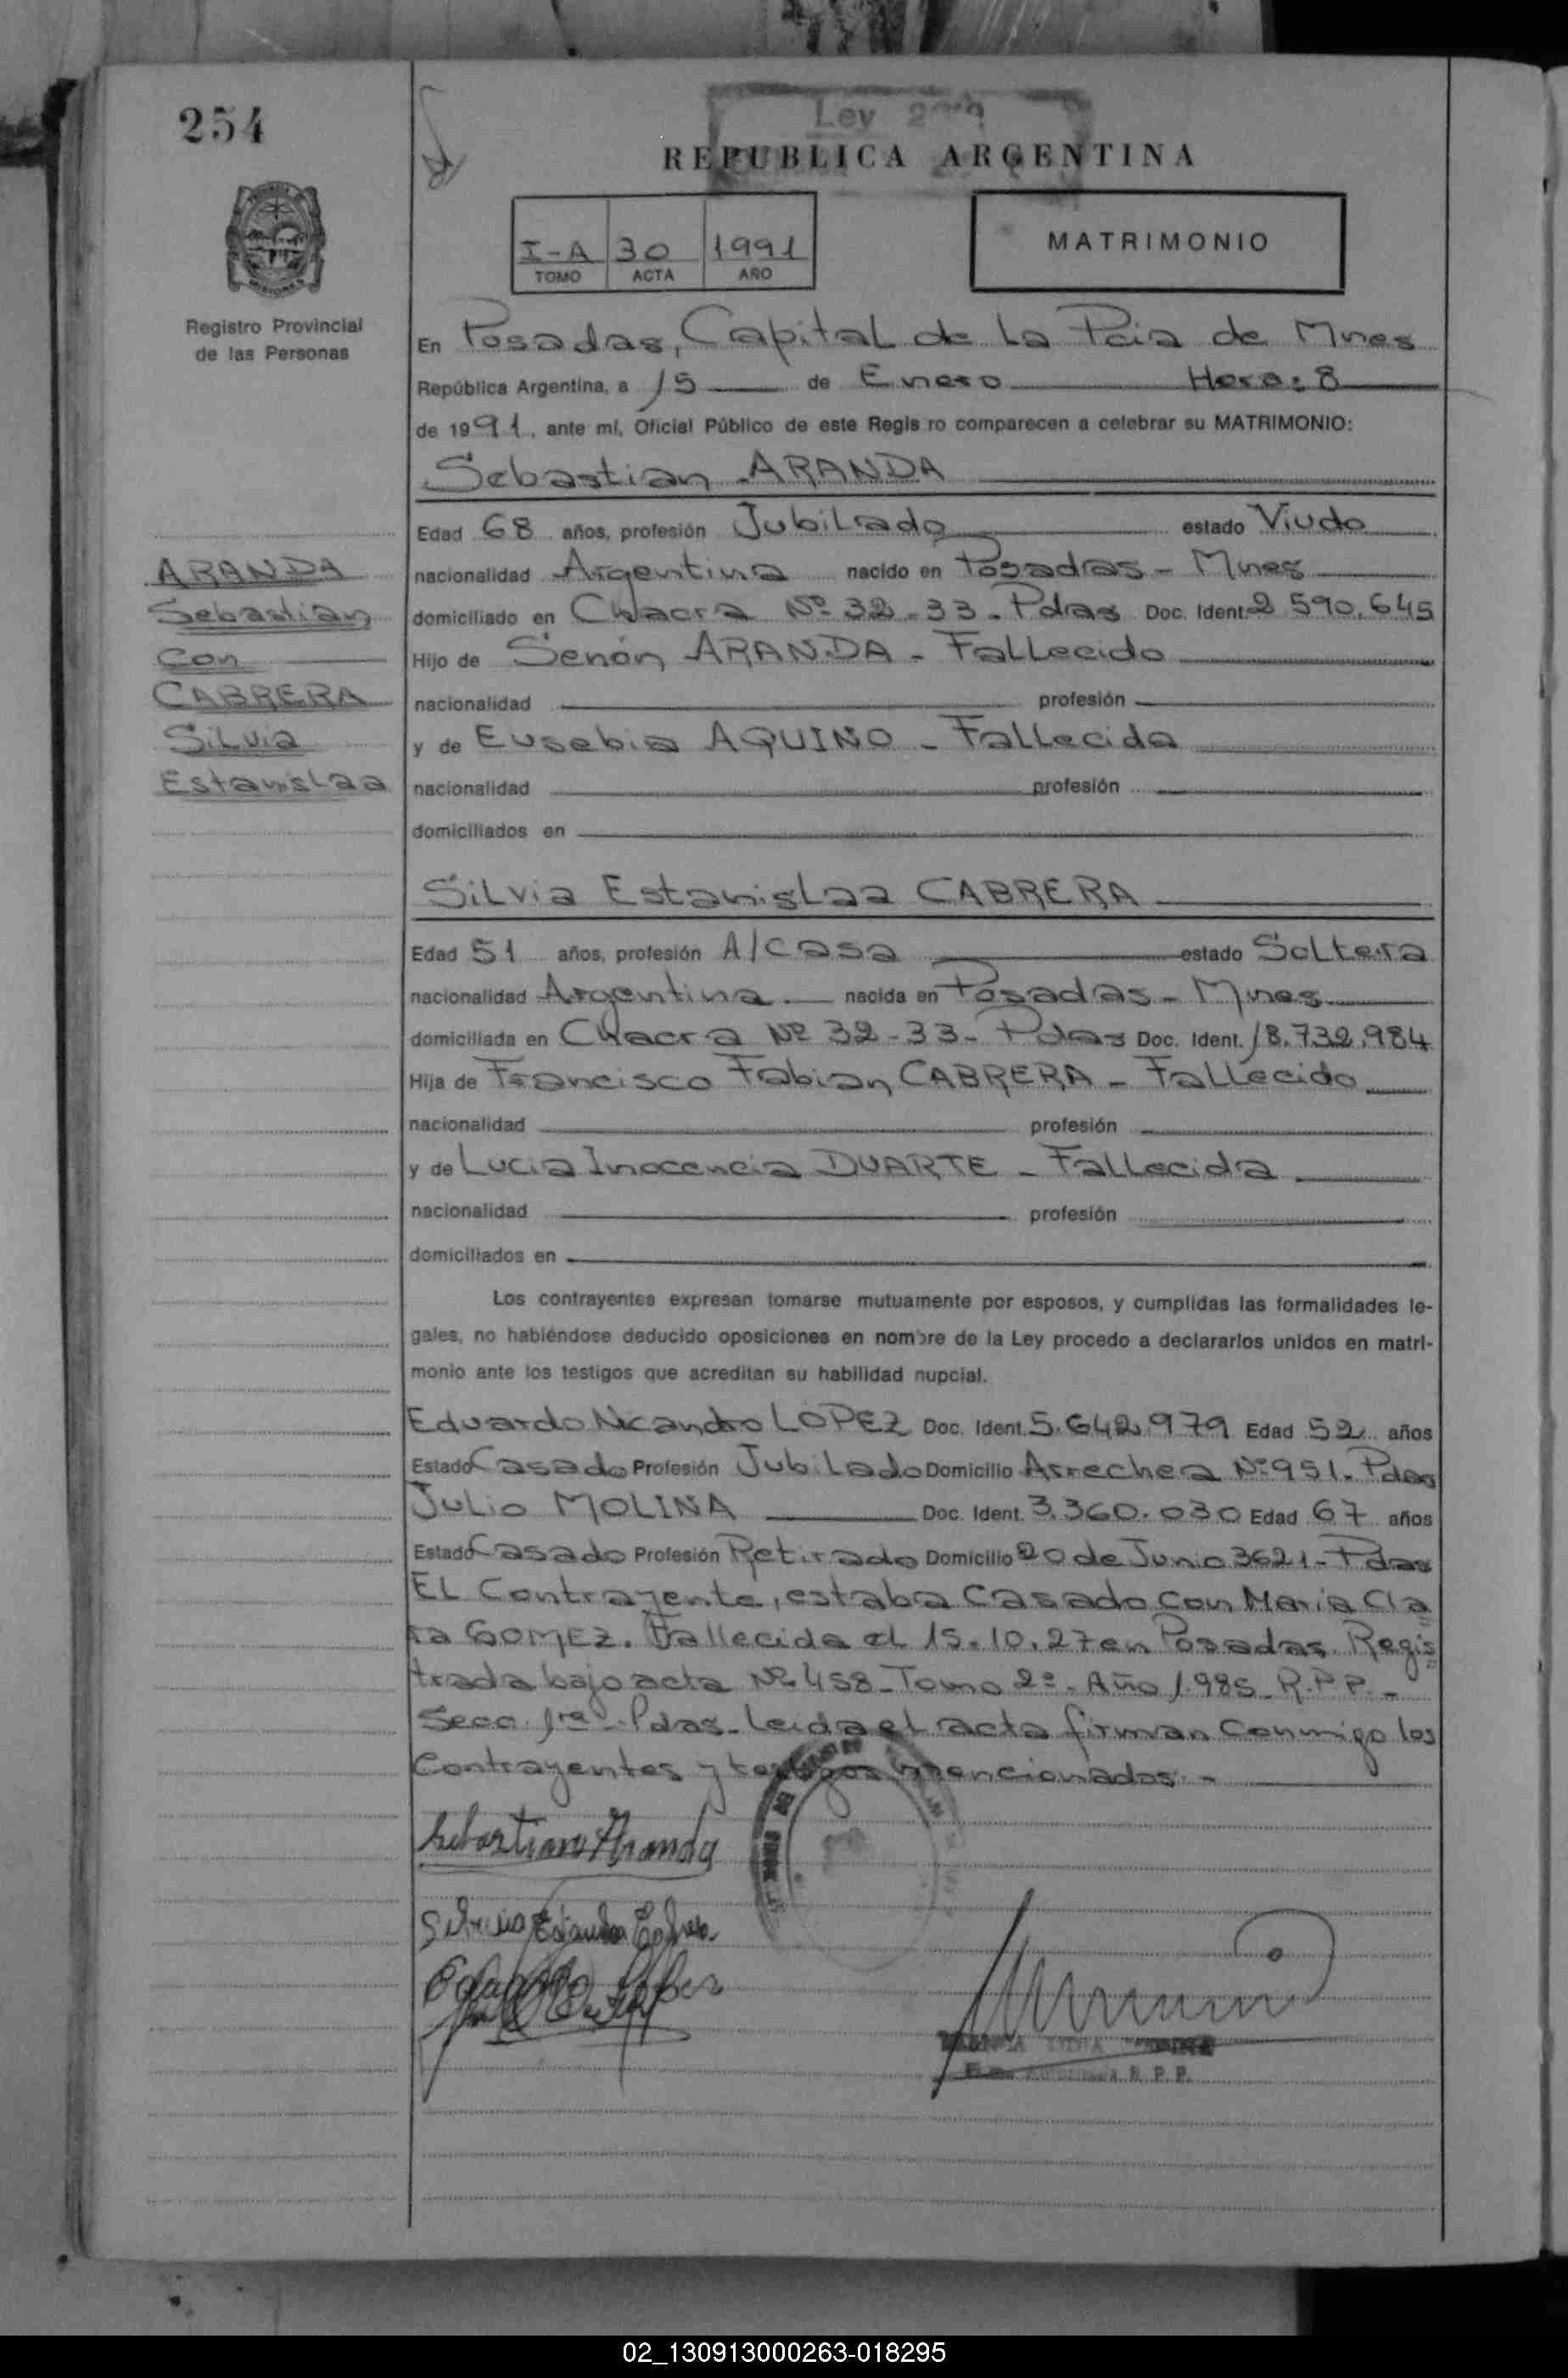 254
Ley
REPUBLICA ARGENTINA
I-A 30 1991
TOMO ACTA AÑO
MATRIMONIO
MISIONES
Registro Provincial
de las Personas
En Posadas, Capital de La Pcia de Mnes
República Argentina, a 15 de Enero Hora: 8
de 1991, ante mí, Oficial Público de este Regis ro comparecen a celebrar su MATRIMONIO:
Sebastian ARANDA
Edad 68 años, profesión Jubilado estado Viudo
nacionalidad Argentina nacido en Posadas - Mnes
domiciliado en Chacra Nº 32-33- Pdas Doc. Ident. 2 590.645
Hijo de Senón ARANDA - Fallecido
nacionalidad profesión
y de Eusebia AQUINO - Fallecida
nacionalidad profesión
domiciliados en
ARANDA
Sebastian
Con
CABRERA
Silvia
Estanislaa
Silvia Estanislaa CABRERA
Edad 51 años, profesión A/casa estado Soltera
nacionalidad Argentina nacida en Posadas - Mnes
domiciliada en Chacra Nº 32-33- Pdas Doc. Ident. 18.732.984
Hija de Francisco Fabian CABRERA - Fallecido
nacionalidad profesión
y de Lucia Inocencia DUARTE - Fallecida
nacionalidad profesión
domiciliados en
Los contrayentes expresan tomarse mutuamente por esposos, y cumplidas las formalidades le-
gales, no habiéndose deducido oposiciones en nombre de la Ley procedo a declararlos unidos en matri-
monio ante los testigos que acreditan su habilidad nupcial.
Eduardo Nicandro LOPEZ Doc. Ident. 5.642.979 Edad 52 años
Estado Casado Profesión Jubilado Domicilio Arrechea Nº 951. Pdas
Julio MOLINA Doc. Ident. 3.360.030 Edad 67 años
Estado Casado Profesión Retirado Domicilio 20 de Junio 3621 - Pdas
El Contrayente, estaba Casado Con Maria Cla
ra GOMEZ. Fallecida el 15.10.27 en Posadas. Regis
trada bajo acta Nº 458 - Tomo 2º. Año 1.985 - R.P.P. -
Secc. 1ra - Pdas - Leida el acta firman Conmigo los
Contrayentes y testigos mencionados. -
Sebastian Aranda
R. P. P.
02_130913000263-018295